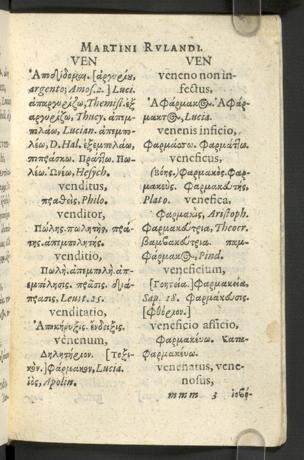 MARTINI RVLANDI.
VEN
Ἀποδίδομαι. [ἀργυρίῳ,
argento; Amos. 2.] Luci.
ἀπαργυρίζω, Themist. ἐξ
αργυρίζω, Thucy. ἀπεμ-
πολάω, Lucian. ἀπεμπο-
λέω, D. Hal. ἐξεμπολάω,
πιπράσκω. Πρατίω. Πω-
λέω. Ὠνέω, Hesych.
venditus,
πραθείς, Philo.
venditor,
Πώλης. πωλητὴρ, πρά-
της. ἀπεμπολητής.
venditio,
Πωλή. ἀπεμπολή. ἀπ-
εμπόλησις. πρᾶσις. διά-
πρασις, Leuit. 25.
venditatio,
Αποκήρυξις. ἔνδειξις.
venenum,
Δηλητήριον. [Τοξι-
κὸν.] Φάρμακον, Lucia.
ἰὸς, Apollin.
VEN
veneno non in-
fectus,
Ἀφάρμακος. Ἀφάρ-
μακτος, Lucia.
venenis inficio,
Φαρμάσσω. Φαρμάττω.
veneficus,
φαρμακός. Φαρ-
μακεύς. Φαρμακευτής,
Plato. venefica,
Φαρμακὶς, Aristoph.
Φαρμακεύτρια, Theocr.
Βαμβακεύτρια. παμ-
φάρμακος, Pind.
veneficium,
[Γοητεία.] Φαρμακεία,
Sap. 18. Φαρμάκευσις.
[Φθόριον.]
veneficio afficio,
Φαρμακεύω. Κατα-
φαρμακεύω.
venenatus, vene-
nosus,
mmm 3 ἰοβό-